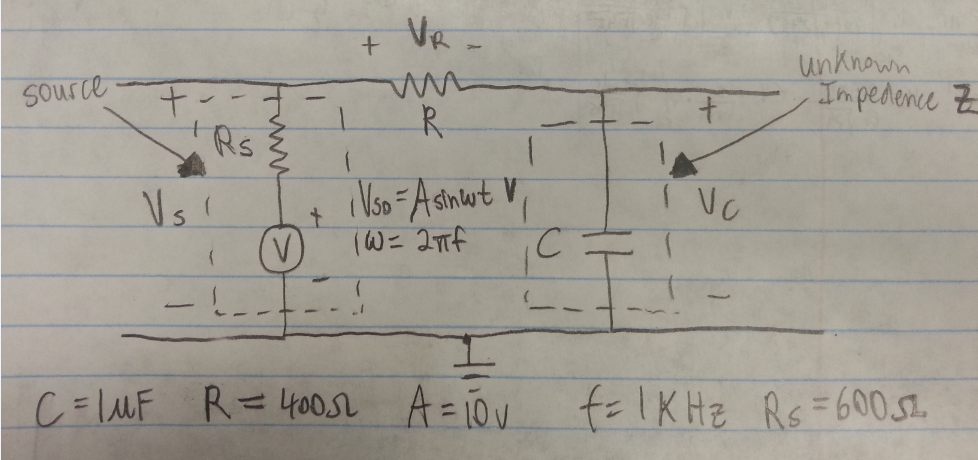 + VR -
unknown
Impedence Z
source
+ - +
Rs
R
Vs
+
Vso = A sin wt V
ω = 2πf
V
C
VC
-
-
-
C = 1μF R = 400Ω A = 10v f = 1KHz Rs = 600Ω